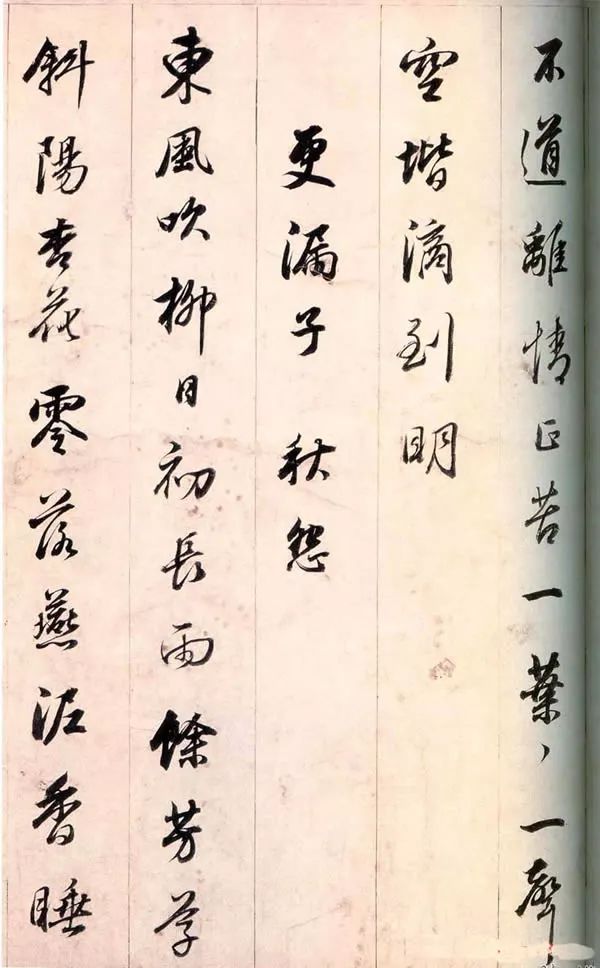 不道離情正苦一葉丶一聲丶
空堦滴到明
更漏子 秋怨
東風吹柳日初長雨餘芳草
斜陽杏花零落燕泥香睡